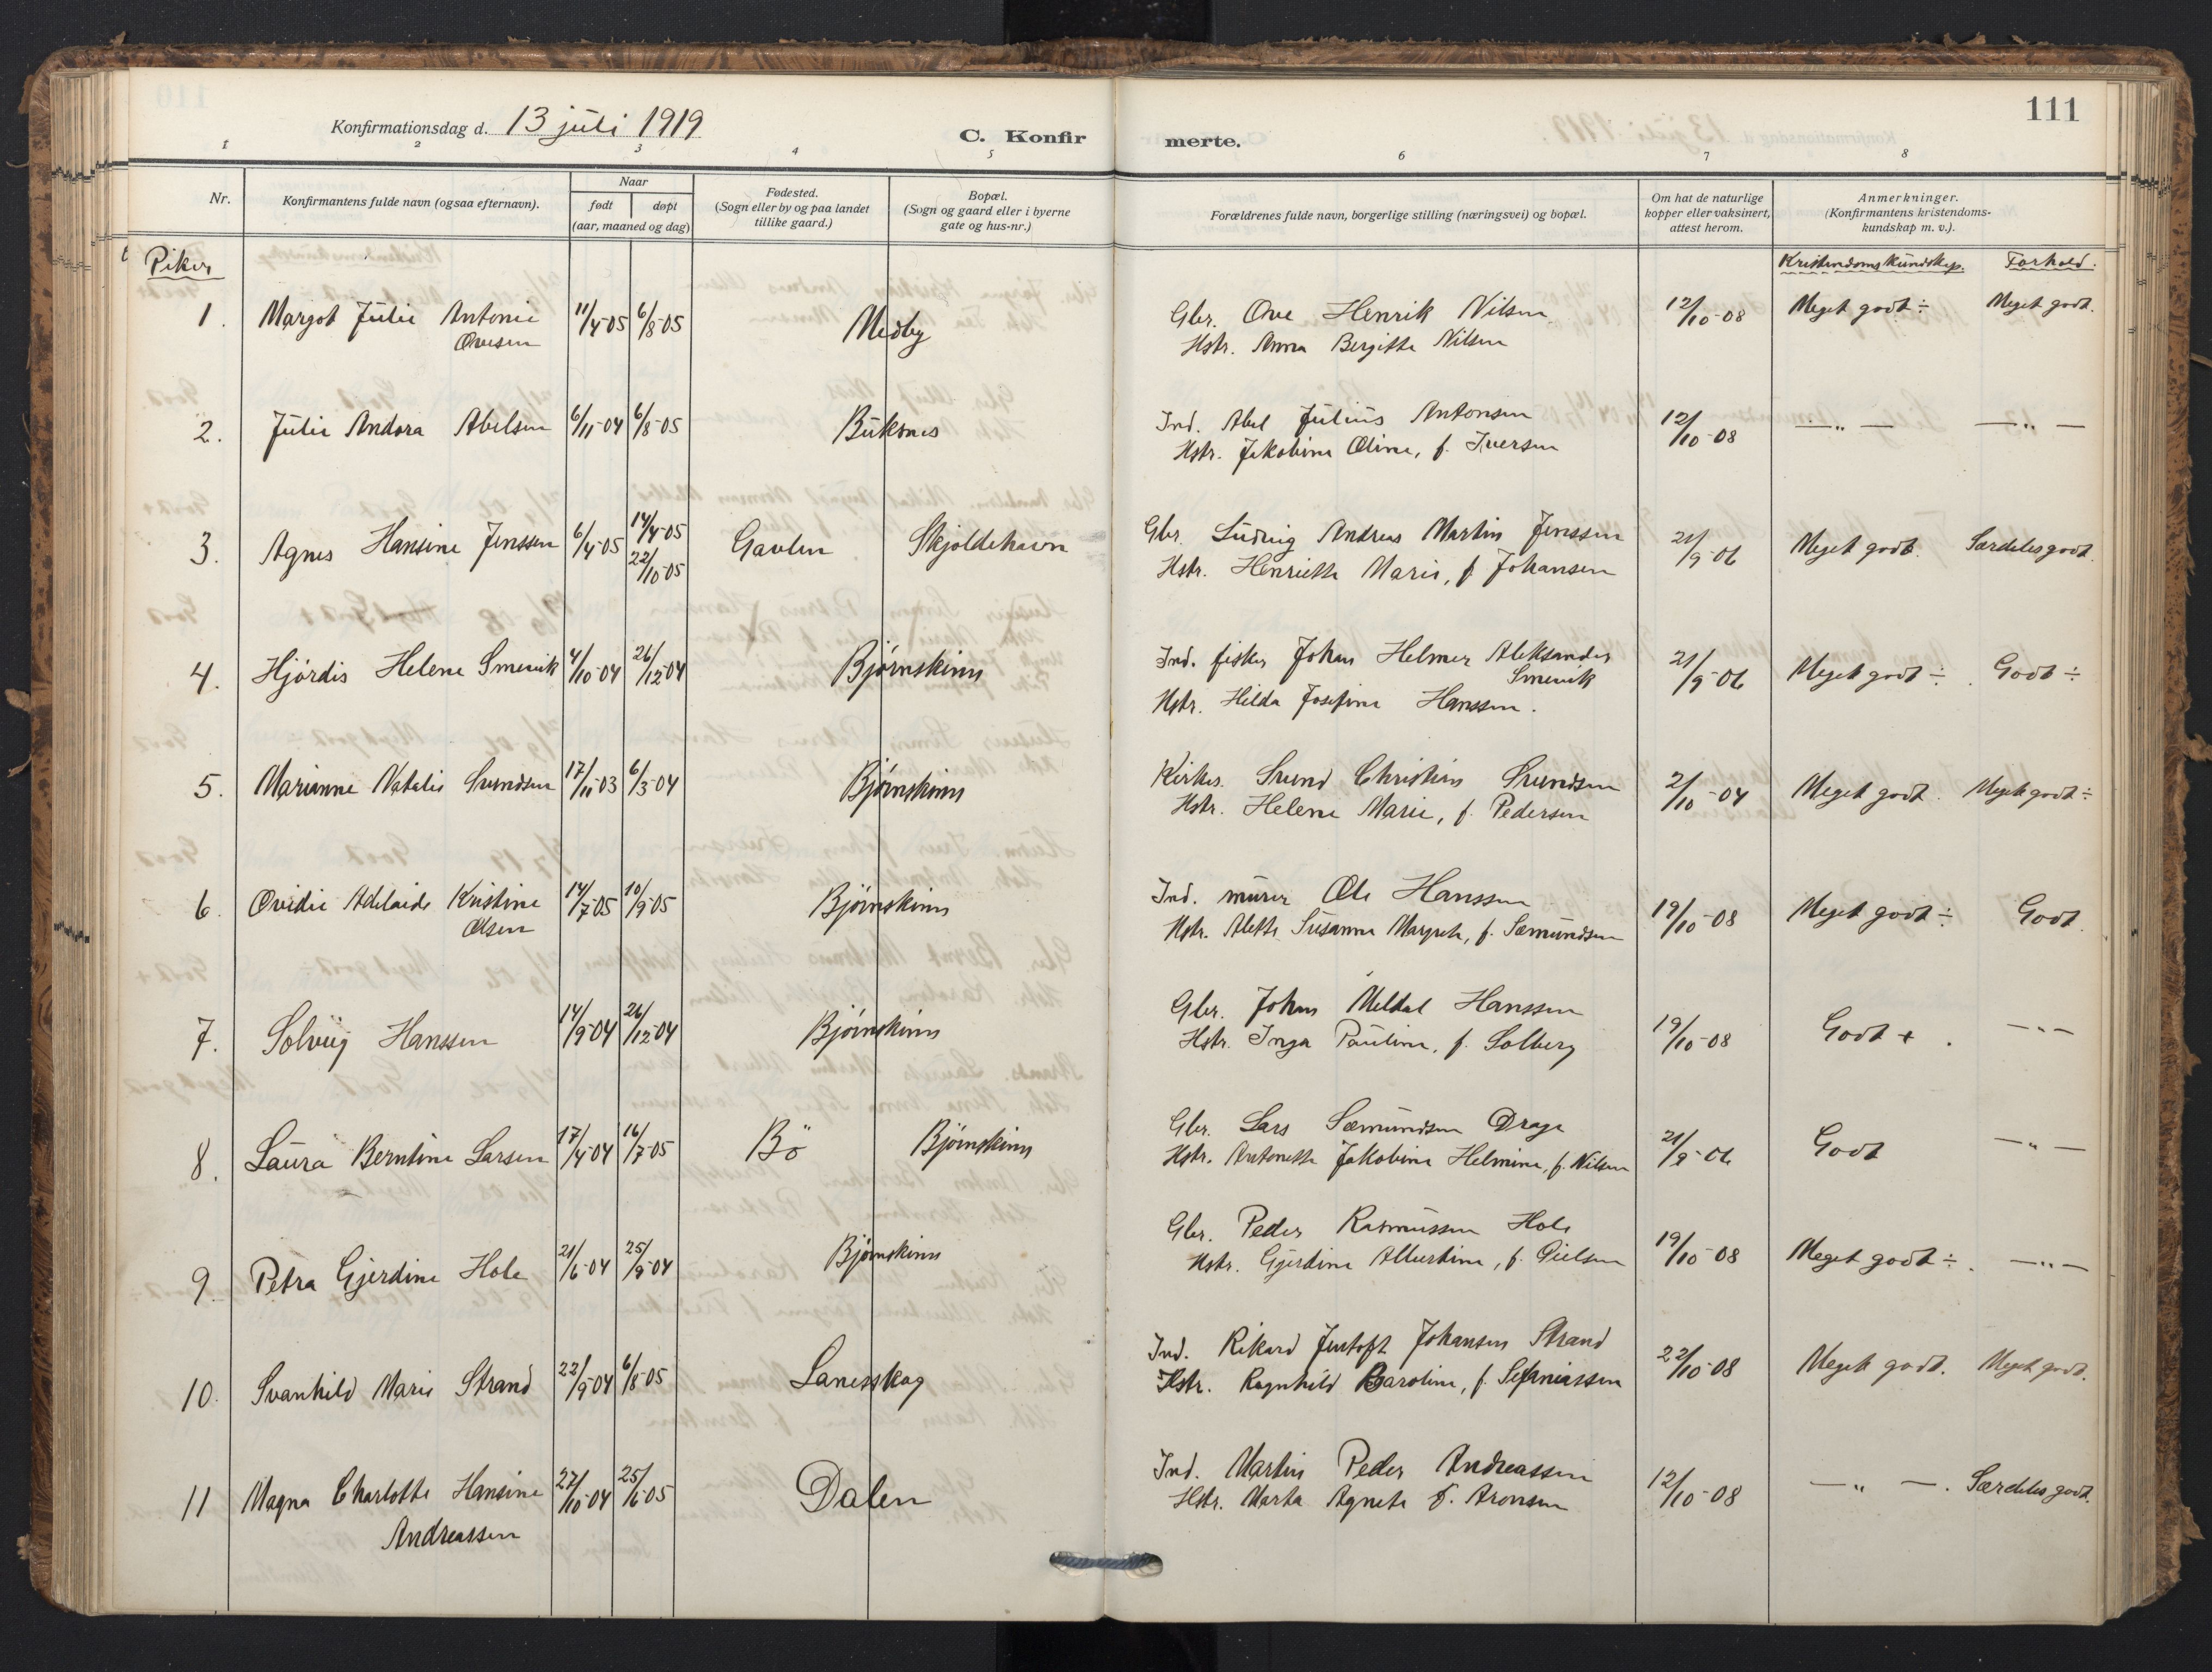 111
Konfirmationsdag d. 13 juli 1919
C. Konfirmerte.
1 2 3 4 5 6 7 8
Nr.
Konfirmantens fulde navn (ogsaa efternavn).
Naar
født døpt
(aar, maaned og dag)
Fødested.
(Sogn eller by og paa landet
tillike gaard.)
Bopæl.
(Sogn og gaard eller i byerne
gate og hus-nr.)
Forældrenes fulde navn, borgerlige stilling (næringsvei) og bopæl.
Om hat de naturlige
kopper eller vaksinert,
attest herom.
Anmerkninger.
(Konfirmantens kristendoms-
kundskap m. v.).
Piker
Kristendomskundskap. Forhold.
1. Margot Julie Antonie Ovesen 11/4-05 6/8-05 Medby
Gbr. Ove Henrik Nilsen
Hstr. Anna Bergitte Nilsen
12/10-08 Meget godt ÷ Meget godt.
2. Julie Andora Abelsen 6/11-04 6/8-05 Buksnes
Ind. Abel Julius Antonsen
Hstr. Jakobine Oline, f. Iversen
12/10-08 — „ — — „ —
3. Agnes Hansine Jenssen 6/4-05 14/4-05 22/10-05 Gavlen Skjoldehavn
Gbr. Ludvig Andreas Martin Jenssen
Hstr. Henriette Marie, f. Johansen
21/9-06 Meget godt. Særdeles godt.
4. Hjørdis Helene Smevik 4/10-04 26/12-04 Bjørnskinn
Ind. fisker Johan Helmer Aleksander Smevik
Hstr. Hilda Josefine Hanssen.
21/9-06 Meget godt ÷ Godt ÷
5. Marianne Natalie Svendsen 17/11-03 6/3-04 Bjørnskinn
Kirkes. Svend Christian Svendsen
Hstr. Helene Marie, f. Pedersen
2/10-04 Meget godt. Meget godt ÷
6. Ovidie Adelaide Kristine Olsen 14/7-05 10/9-05 Bjørnskinn
Ind. murer Ole Hanssen
Hstr. Alette Susanne Margrete, f. Sæmundsen
19/10-08 Meget godt ÷ Godt
7. Solveig Hanssen 14/9-04 26/12-04 Bjørnskinn
Gbr. Johan Meldal Hanssen
Hstr. Inga Pauline, f. Solberg
19/10-08 Godt + — „ —
8. Laura Berntine Larsen 17/4-04 16/7-05 Bö Bjørnskinn
Gbr. Lars Sæmundsen Drage
Hstr. Antonette Jakobine Helmine, f. Nilsen
21/9-06 Godt — „ —
9. Petra Gjerdine Hole 21/6-04 25/9-04 Bjørnskinn
Gbr. Peder Rasmussen Hole
Hstr. Gjerdine Albertine, f. Nielsen
19/10-08 Meget godt ÷ — „ —
10. Svanhild Marie Strand 22/9-04 6/8-05 Lanesskog
Ind. Rikard Johansen Strand
Hstr. Ragnhild Karoline, f. Sefaniassen
22/10-08 Meget godt. Meget godt.
11 Magna Charlotte Hansine Andreassen 27/10-04 25/6-05 Dalen
Ind. Martin Peder Andreassen
Hstr. Marta Agnete f. Aronsen
12/10-08 — „ —. Særdeles godt.